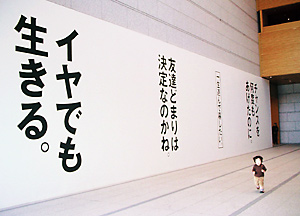 チャンスを
何度も
あげたのに。
友達どまりは
決定なのかね。
イヤでも
生きる。